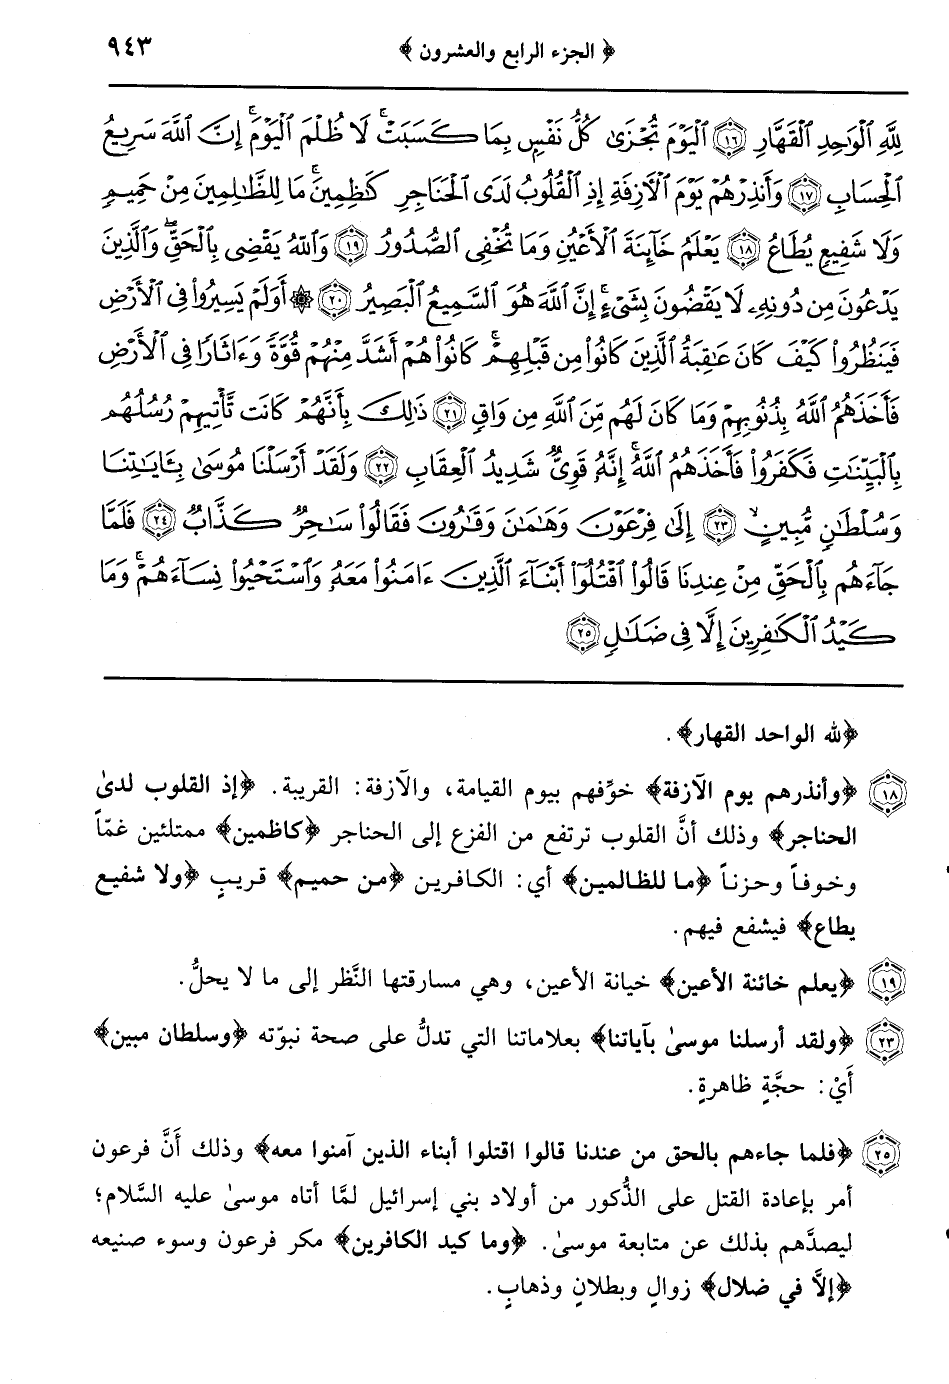 ﴿ الجزء الرابع والعشرون ﴾ ٩٤٣
لِلَّهِ ٱلْوَٰحِدِ ٱلْقَهَّارِ ١٦ ٱلْيَوْمَ تُجْزَىٰ كُلُّ نَفْسٍۭ بِمَا كَسَبَتْ ۚ لَا ظُلْمَ ٱلْيَوْمَ ۚ إِنَّ ٱللَّهَ سَرِيعُ
ٱلْحِسَابِ ١٧ وَأَنذِرْهُمْ يَوْمَ ٱلْـَٔازِفَةِ إِذِ ٱلْقُلُوبُ لَدَى ٱلْحَنَاجِرِ كَٰظِمِينَ ۚ مَا لِلظَّٰلِمِينَ مِنْ حَمِيمٍ
وَلَا شَفِيعٍ يُطَاعُ ١٨ يَعْلَمُ خَآئِنَةَ ٱلْأَعْيُنِ وَمَا تُخْفِى ٱلصُّدُورُ ١٩ وَٱللَّهُ يَقْضِى بِٱلْحَقِّ ۖ وَٱلَّذِينَ
يَدْعُونَ مِن دُونِهِۦ لَا يَقْضُونَ بِشَىْءٍ ۗ إِنَّ ٱللَّهَ هُوَ ٱلسَّمِيعُ ٱلْبَصِيرُ ٢٠ ۞ أَوَلَمْ يَسِيرُوا۟ فِى ٱلْأَرْضِ
فَيَنظُرُوا۟ كَيْفَ كَانَ عَٰقِبَةُ ٱلَّذِينَ كَانُوا۟ مِن قَبْلِهِمْ ۚ كَانُوا۟ هُمْ أَشَدَّ مِنْهُمْ قُوَّةً وَءَاثَارًا فِى ٱلْأَرْضِ
فَأَخَذَهُمُ ٱللَّهُ بِذُنُوبِهِمْ وَمَا كَانَ لَهُم مِّنَ ٱللَّهِ مِن وَاقٍ ٢١ ذَٰلِكَ بِأَنَّهُمْ كَانَت تَّأْتِيهِمْ رُسُلُهُم
بِٱلْبَيِّنَٰتِ فَكَفَرُوا۟ فَأَخَذَهُمُ ٱللَّهُ ۚ إِنَّهُۥ قَوِىٌّ شَدِيدُ ٱلْعِقَابِ ٢٢ وَلَقَدْ أَرْسَلْنَا مُوسَىٰ بِـَٔايَٰتِنَا
وَسُلْطَٰنٍ مُّبِينٍ ٢٣ إِلَىٰ فِرْعَوْنَ وَهَٰمَٰنَ وَقَٰرُونَ فَقَالُوا۟ سَٰحِرٌ كَذَّابٌ ٢٤ فَلَمَّا
جَآءَهُم بِٱلْحَقِّ مِنْ عِندِنَا قَالُوا۟ ٱقْتُلُوٓا۟ أَبْنَآءَ ٱلَّذِينَ ءَامَنُوا۟ مَعَهُۥ وَٱسْتَحْيُوا۟ نِسَآءَهُمْ ۚ وَمَا
كَيْدُ ٱلْكَٰفِرِينَ إِلَّا فِى ضَلَٰلٍ ٢٥
﴿لله الواحد القهار﴾.
١٨ ﴿وأنذرهم يوم الآزفة﴾ خوِّفهم بيوم القيامة، والآزفة: القريبة. ﴿إذ القلوب لدىٰ
الحناجر﴾ وذلك أنَّ القلوب ترتفع من الفزع إلى الحناجر ﴿كاظمين﴾ ممتلئين غمّاً
وخوفاً وحزناً ﴿ما للظالمين﴾ أي: الكافرين ﴿من حميم﴾ قريبٍ ﴿ولا شفيع
يطاع﴾ فيشفع فيهم.
١٩ ﴿يعلم خائنة الأعين﴾ خيانة الأعين، وهي مسارقتها النَّظر إلى ما لا يحلُّ.
٢٣ ﴿ولقد أرسلنا موسىٰ بآياتنا﴾ بعلاماتنا التي تدلُّ على صحة نبوّته ﴿وسلطان مبين﴾
أَيْ: حجَّةٍ ظاهرةٍ.
٢٥ ﴿فلما جاءهم بالحق من عندنا قالوا اقتلوا أبناء الذين آمنوا معه﴾ وذلك أَنَّ فرعون
أمر بإعادة القتل على الذُّكور من أولاد بني إسرائيل لمَّا أتاه موسىٰ عليه السَّلام؛
ليصدَّهم بذلك عن متابعة موسىٰ. ﴿وما كيد الكافرين﴾ مكر فرعون وسوء صنيعه
﴿إلاَّ في ضلال﴾ زوالٍ وبطلانٍ وذهابٍ.